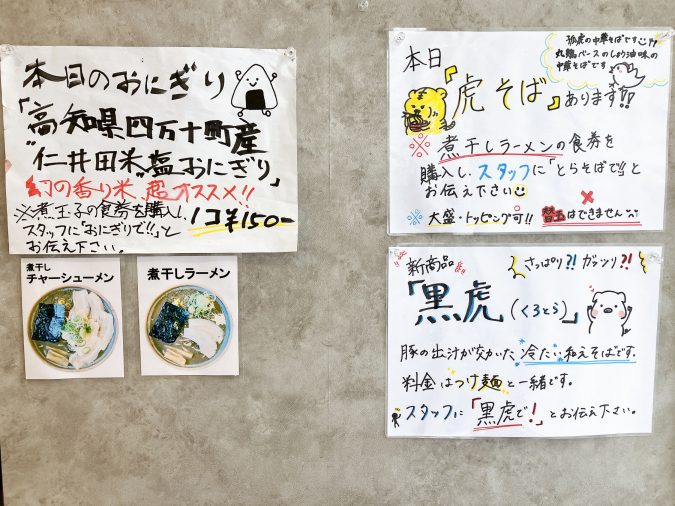 本日のおにぎり
「高知県四万十町産
"仁井田米"塩おにぎり」
幻の香り米、超オススメ!!
※煮玉子の食券を購入し、
スタッフに"おにぎりで!!"と
お伝え下さい。
1コ¥150-
煮干し
チャーシューメン
煮干しラーメン
狐虎の中華そばです
丸鶏ベースのしょう油味の
中華そばです
本日
「虎そば」あります!!
※煮干しラーメンの食券を
購入し、スタッフに「とらそばで!」と
お伝え下さい
※大盛・トッピング可!!
替玉はできません
新商品
さっぱり?! ガッツリ?!
「黒虎(くろとら)」
豚の出汁が効いた、冷たい和えそばです。
料金はつけ麺と一緒です。
スタッフに「黒虎で!」とお伝え下さい。